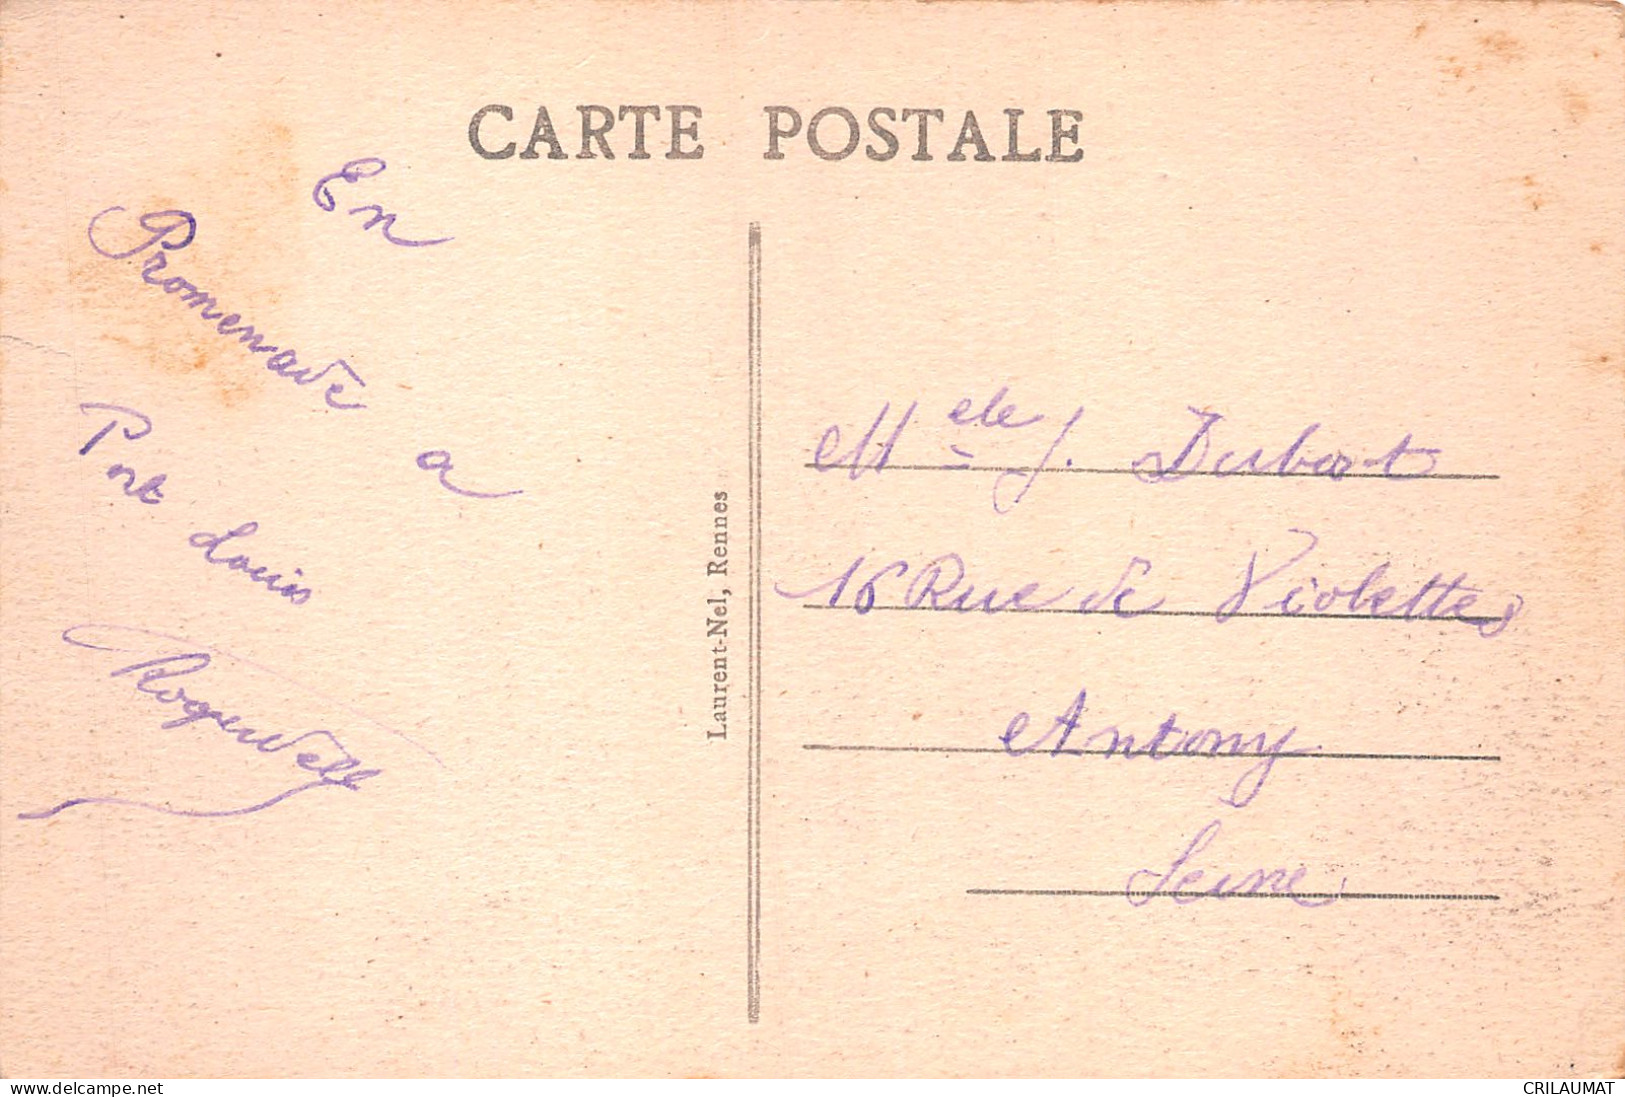 CARTE POSTALE
En
Promenade a
Port Louis
Laurent-Nel, Rennes
Melle J. Dubort
16 Rue de Violettes
Antony
Seine
delcampe.net
CRILAUMAT